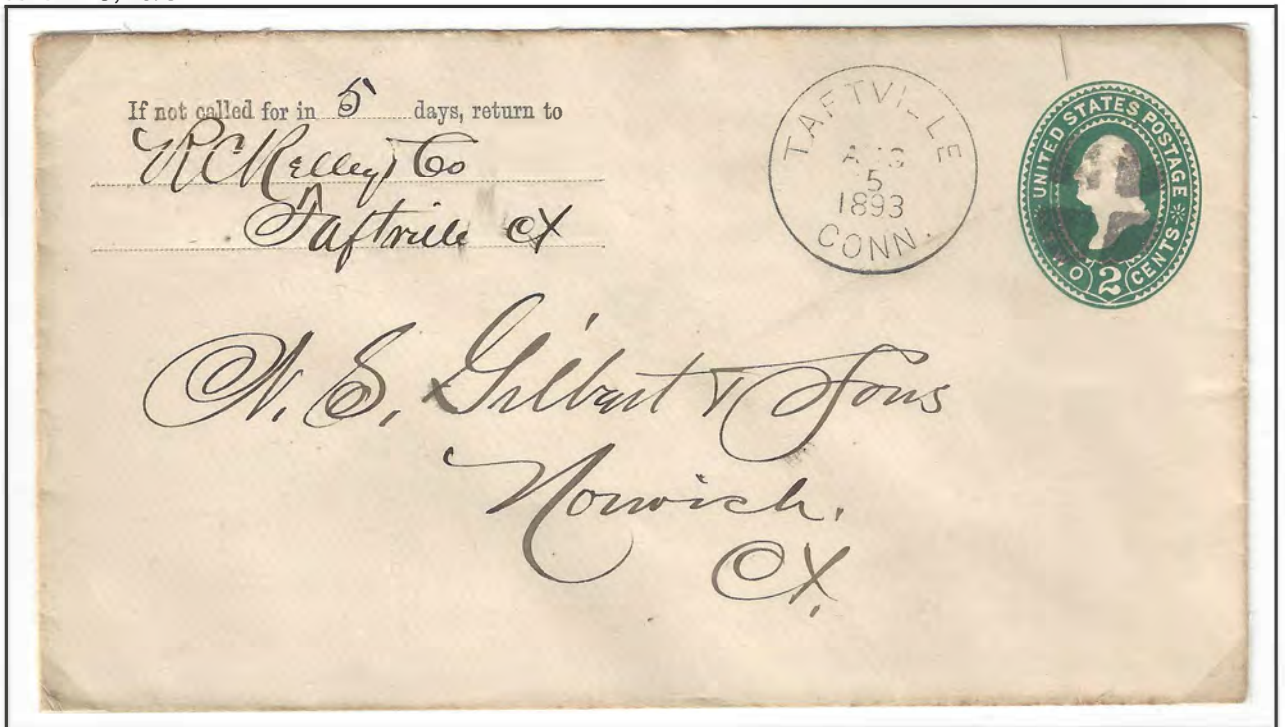 If not called for in 5 days, return to
Kelley & Co
Taftville Ct
TAFTVILLE
AUG
5
1893
CONN.
UNITED STATES POSTAGE
TWO 2 CENTS
N. S. Gilbert & Sons
Norwich.
Ct.